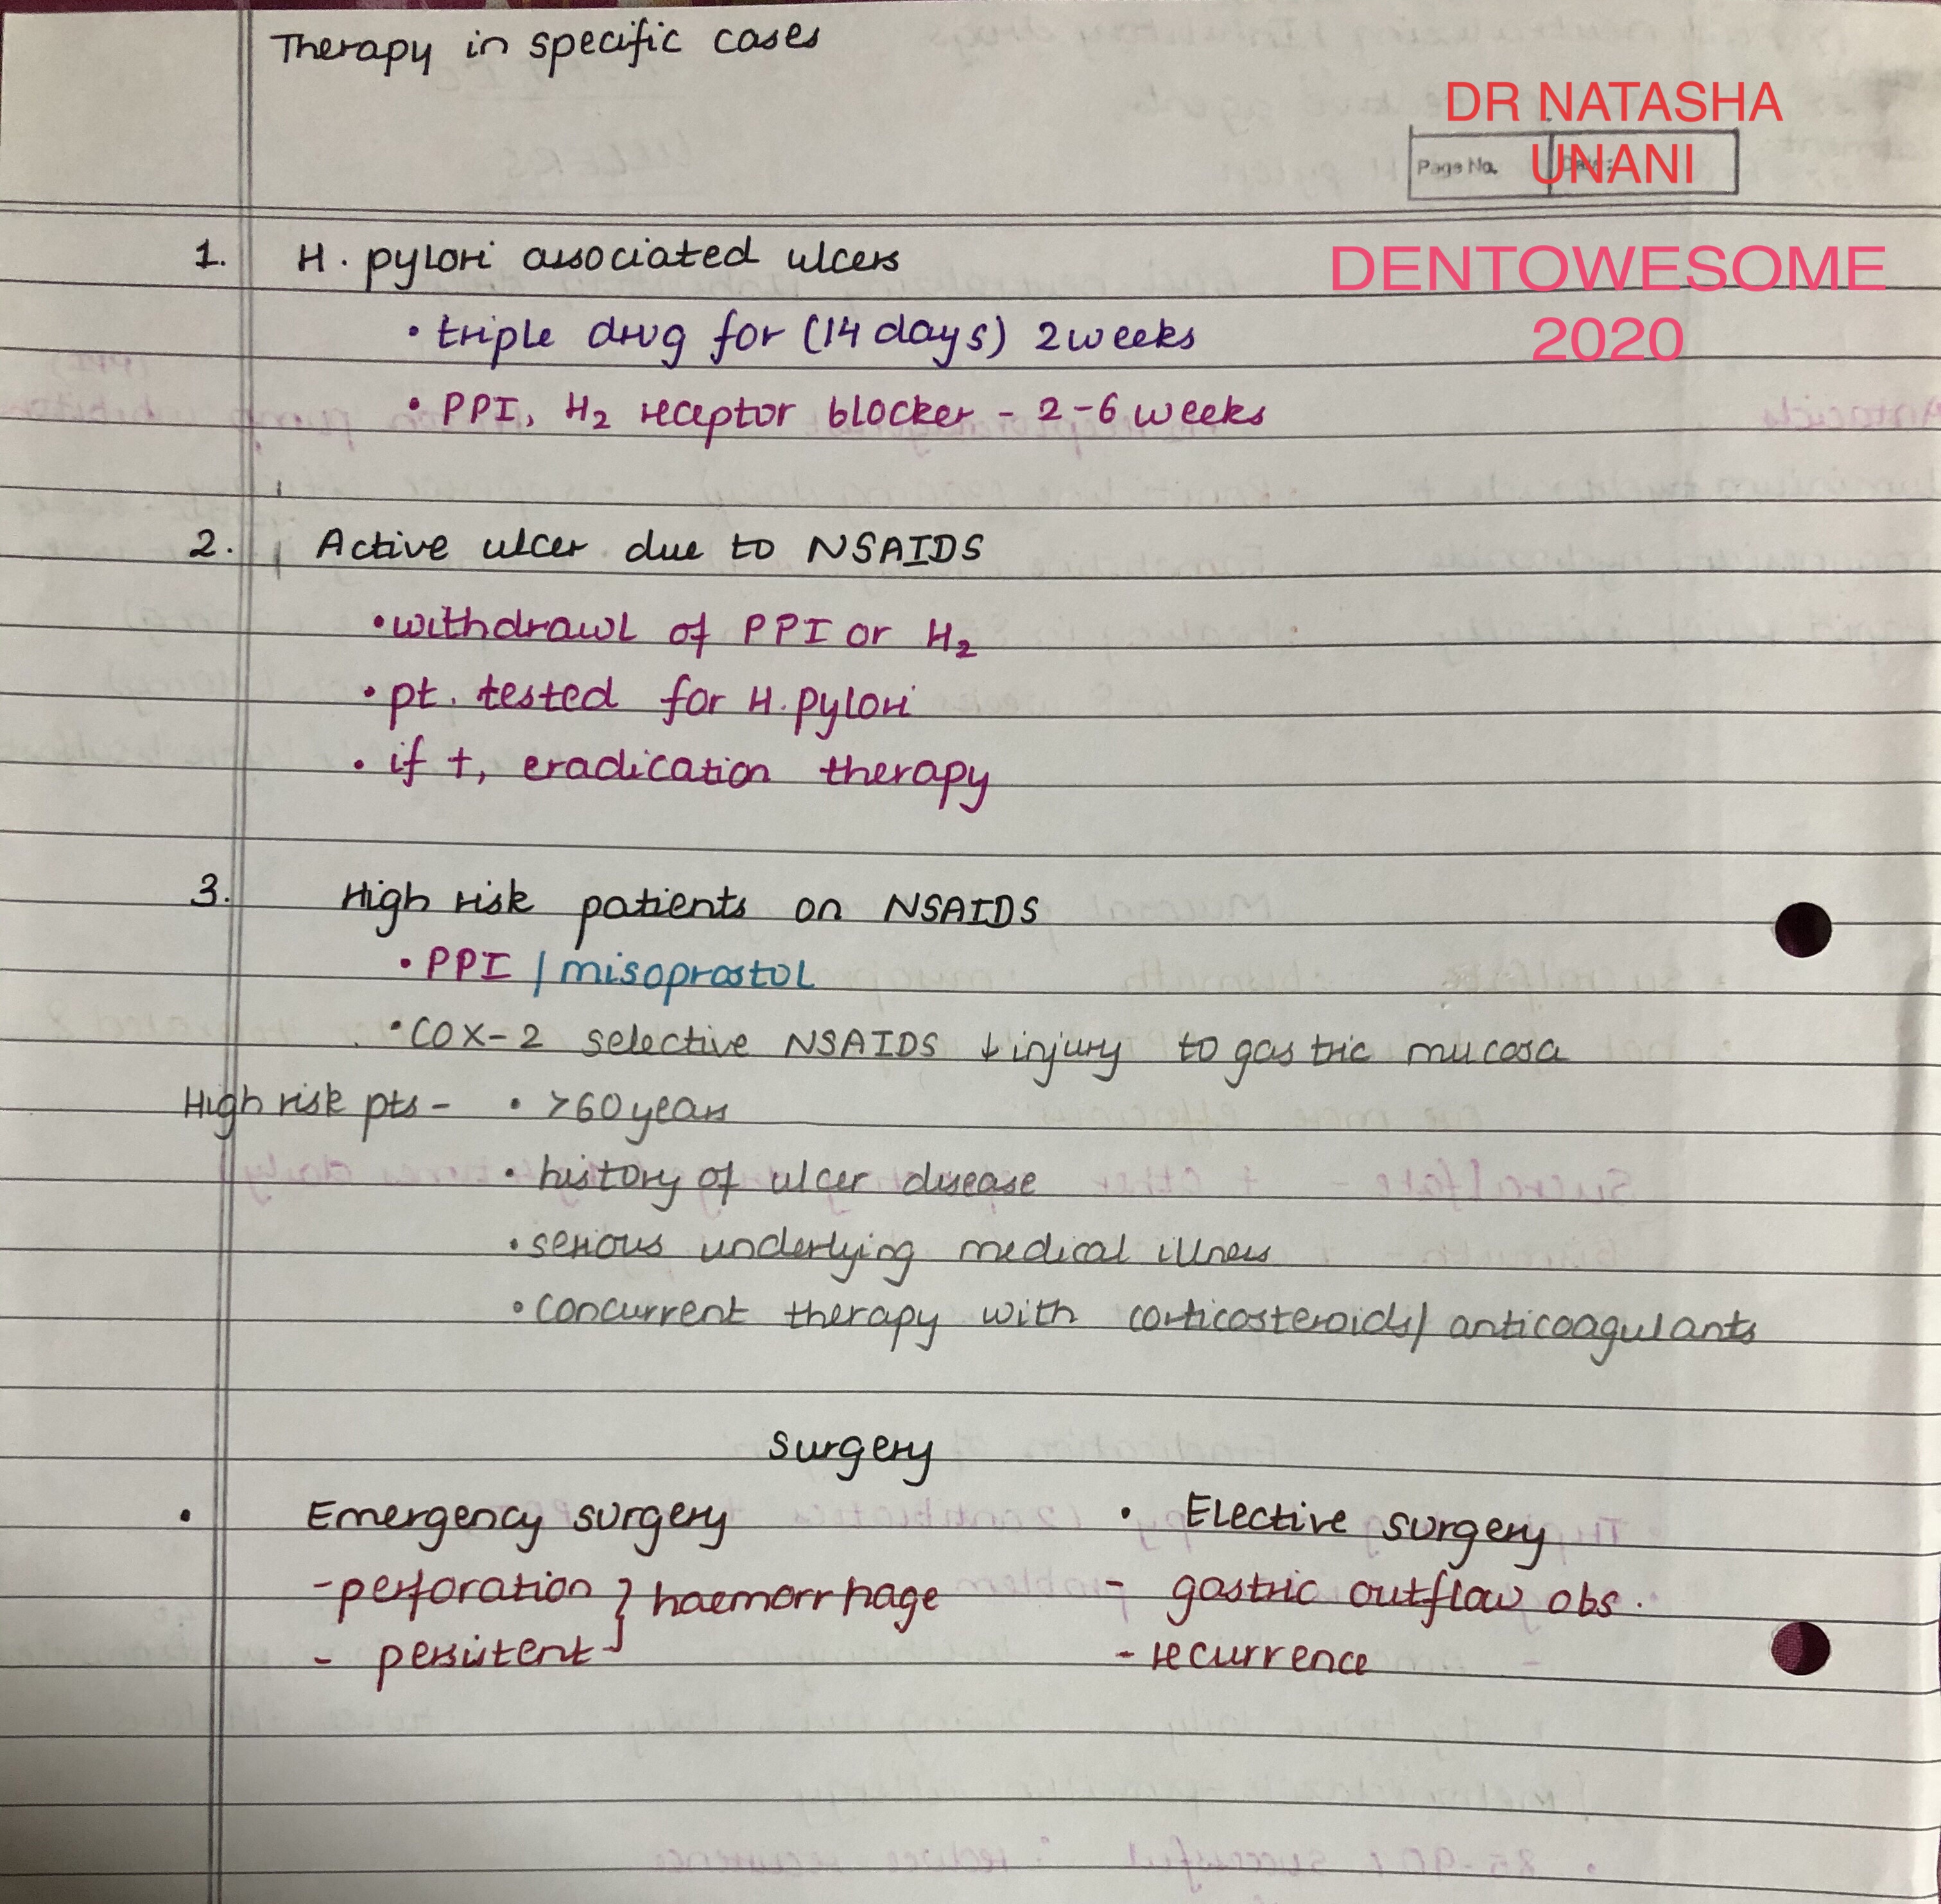 Therapy in specific cases
DR NATASHA
UNANI
Page No.
DENTOWESOME
2020
1. H. pylori associated ulcers
• triple drug for (14 days) 2 weeks
• PPI, H2 receptor blocker - 2-6 weeks
2. Active ulcer due to NSAIDS
• withdrawl of PPI or H2
• pt. tested for H. pylori
• if +, eradication therapy
3. High risk patients on NSAIDS
• PPI / misoprostol
• COX-2 selective NSAIDS ↓ injury to gastric mucosa
High risk pts - • >60 years
• history of ulcer disease
• serious underlying medical illness
• concurrent therapy with corticosteroids/ anticoagulants
Surgery
• Emergency surgery
- perforation } haemorrhage
- persistent
• Elective surgery
- gastric outflow obs.
- recurrence